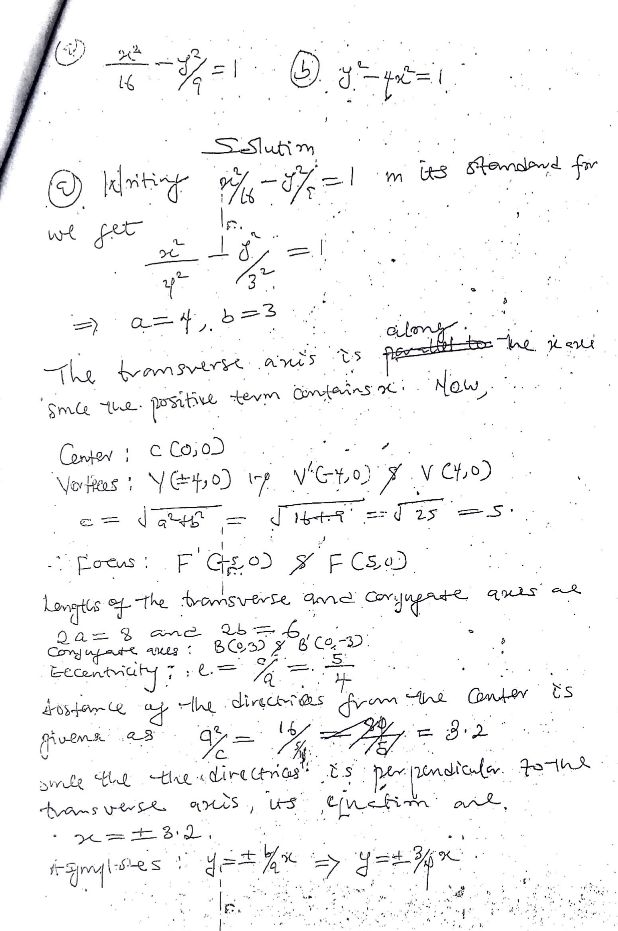 (a) x²/16 - y²/9 = 1 (b) y² - 4x² = 1
Solution
(a) Writing x²/16 - y²/9 = 1 in its standard for
we get
x²/4² - y²/3² = 1
⇒ a = 4, b = 3
The transverse axis is along the x axis
since the positive term contains x. Now,
Center : C(0,0)
Vertices : V(±4,0) i.e V'(-4,0) & V(4,0)
c = √a²+b² = √16+9 = √25 = 5.
∴ Focus : F'(-5,0) & F(5,0)
Lengths of the transverse and conjugate axes are
2a = 8 and 2b = 6
Conjugate axes : B(0,3) & B'(0,-3)
Eccentricity : e = c/a = 5/4
distance of the directrices from the center is
given as a²/c = 16/5 = 3.2
since the the directrices is perpendicular to the
transverse axis, its equation are,
x = ± 3.2.
Asymptotes : y = ± b/a x ⇒ y = ± 3/4 x